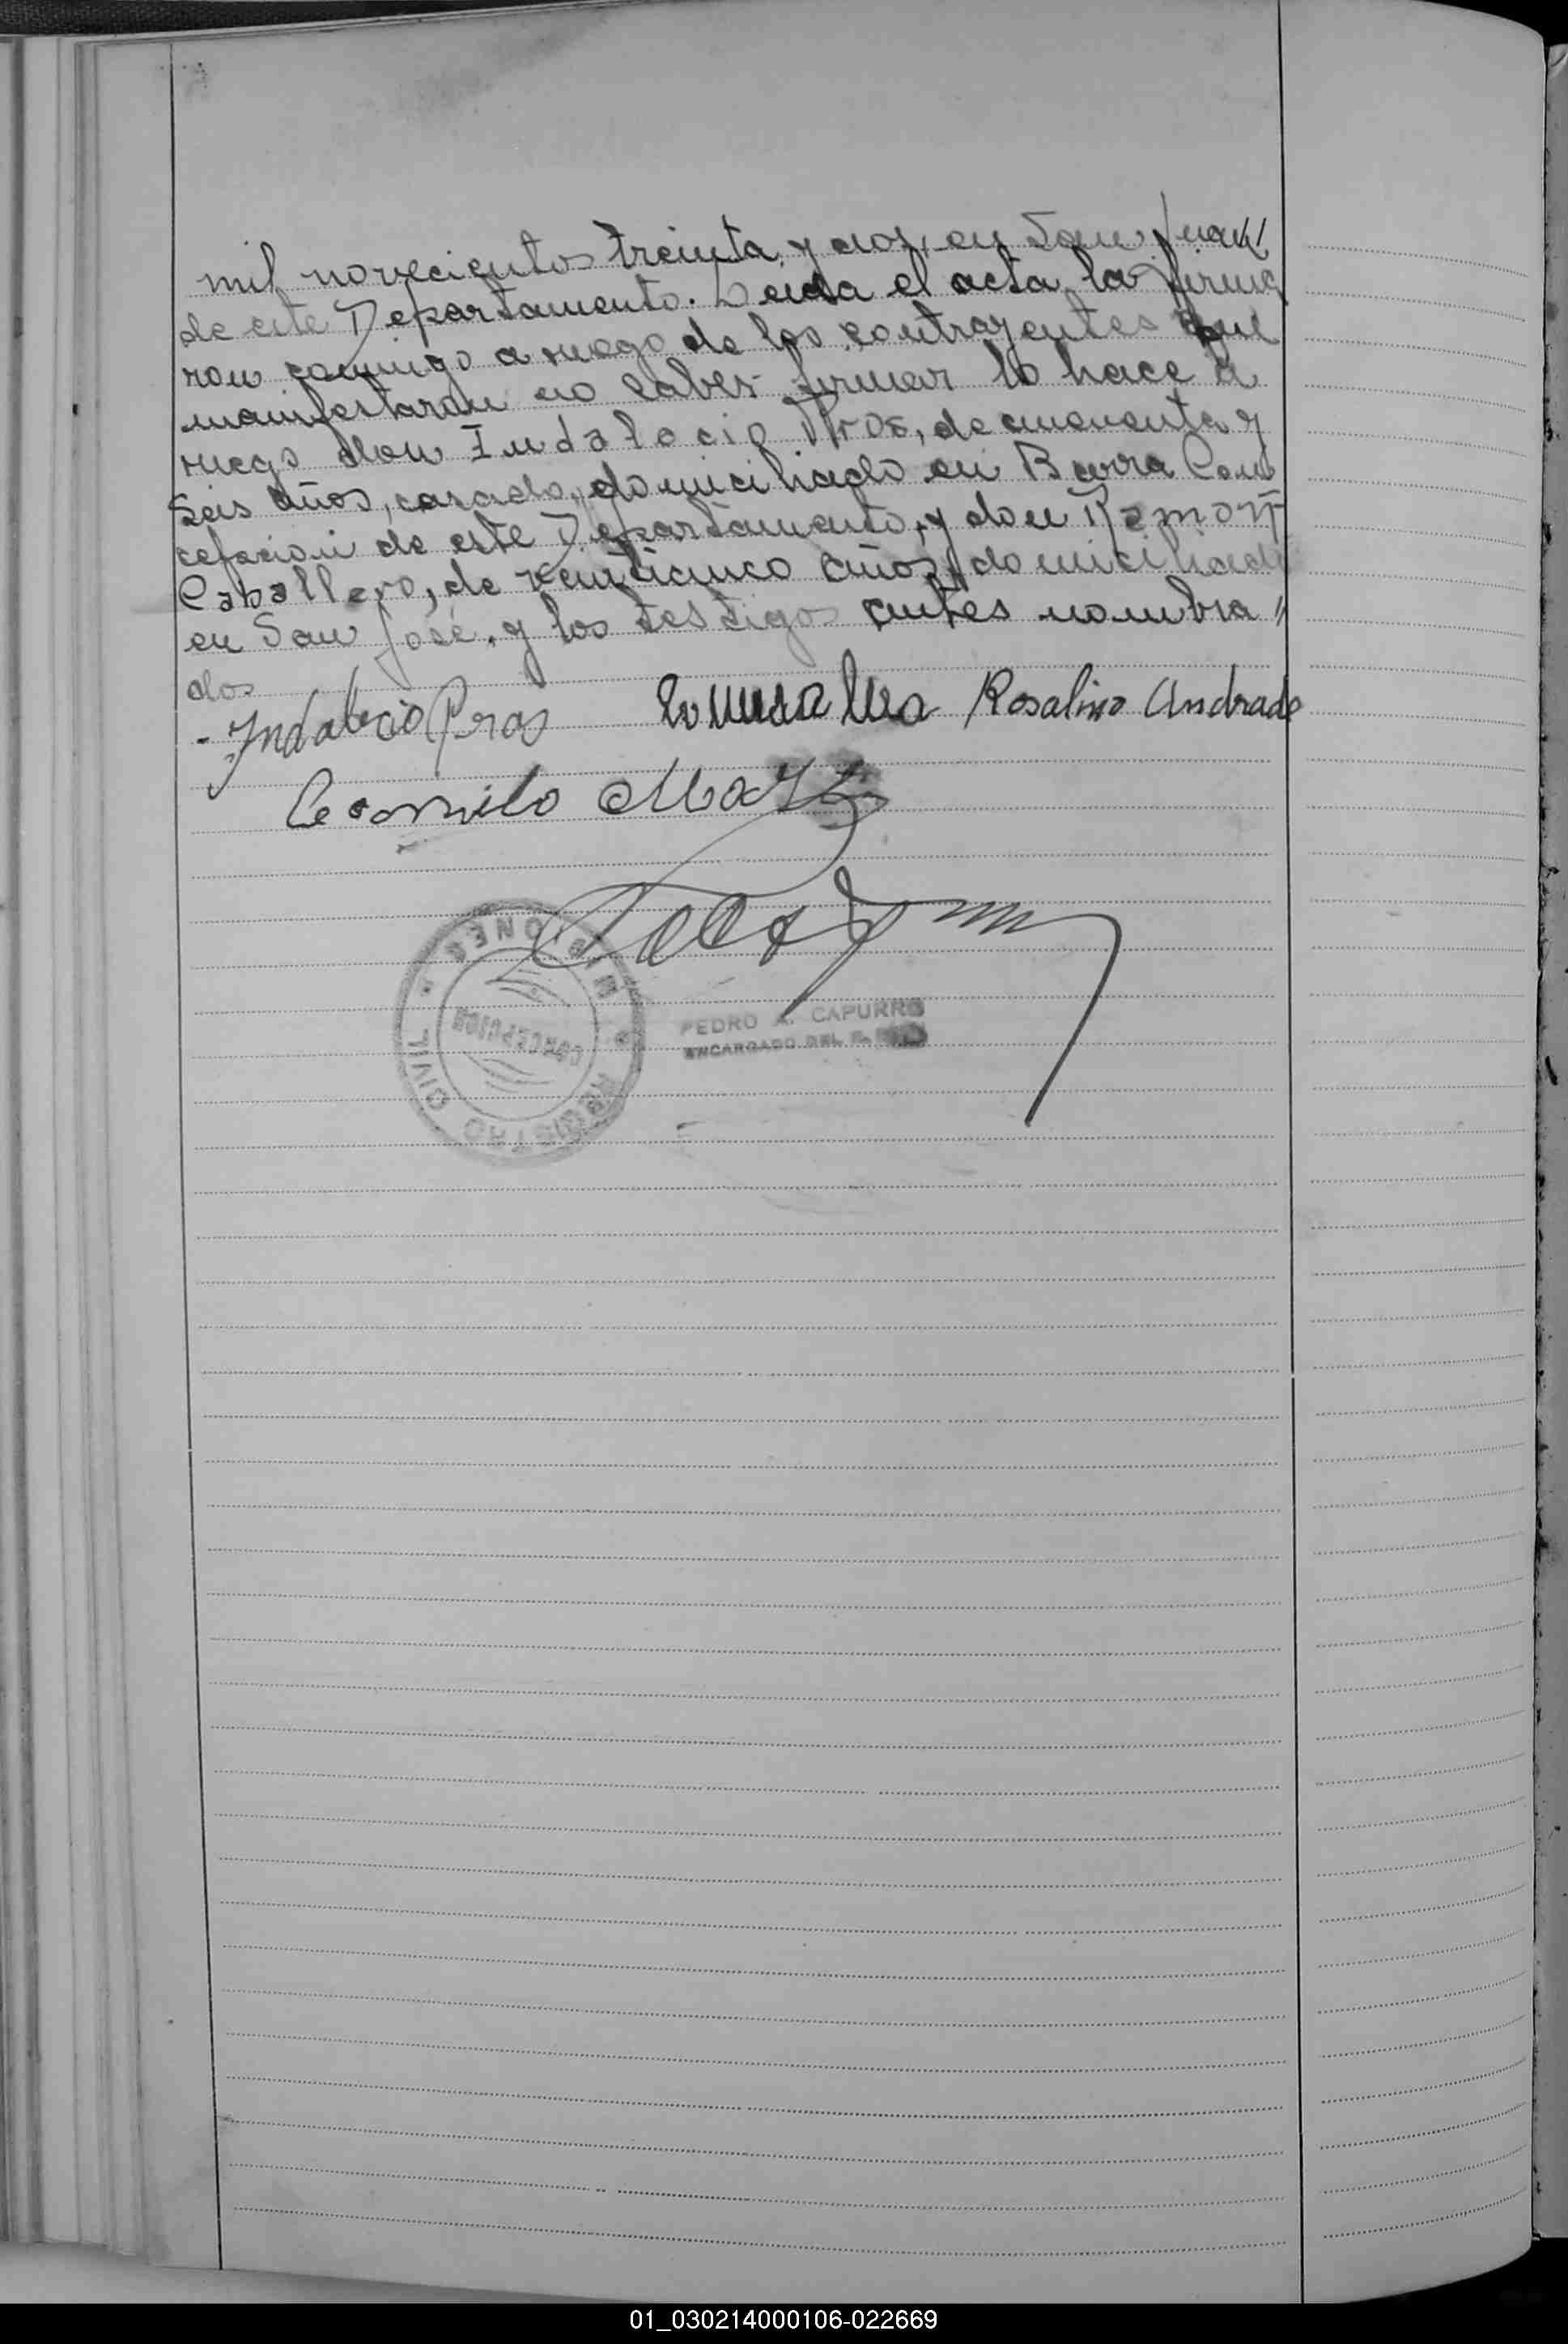 mil novecientos treinta y dos, en San Juan
de este Departamento. Leida el acta la firma
ron conmigo a ruego de los contrayentes que
manifestaron no saber firmar lo hace a
ruego don Indalecio Pros, de cincuenta y
seis años, casado, domiciliado en Barra Con
cepcion de este Departamento, y don Ramon
Caballero, de veinticinco años, domiciliado
en San José, y los testigos antes nombra"
dos
- Indalecio Pros Rosalino Andrade
Camilo
MISIONES
CONCEPCION
REGISTRO CIVIL
PEDRO A. CAPURRO
ENCARGADO DEL R.
01_030214000106-022669